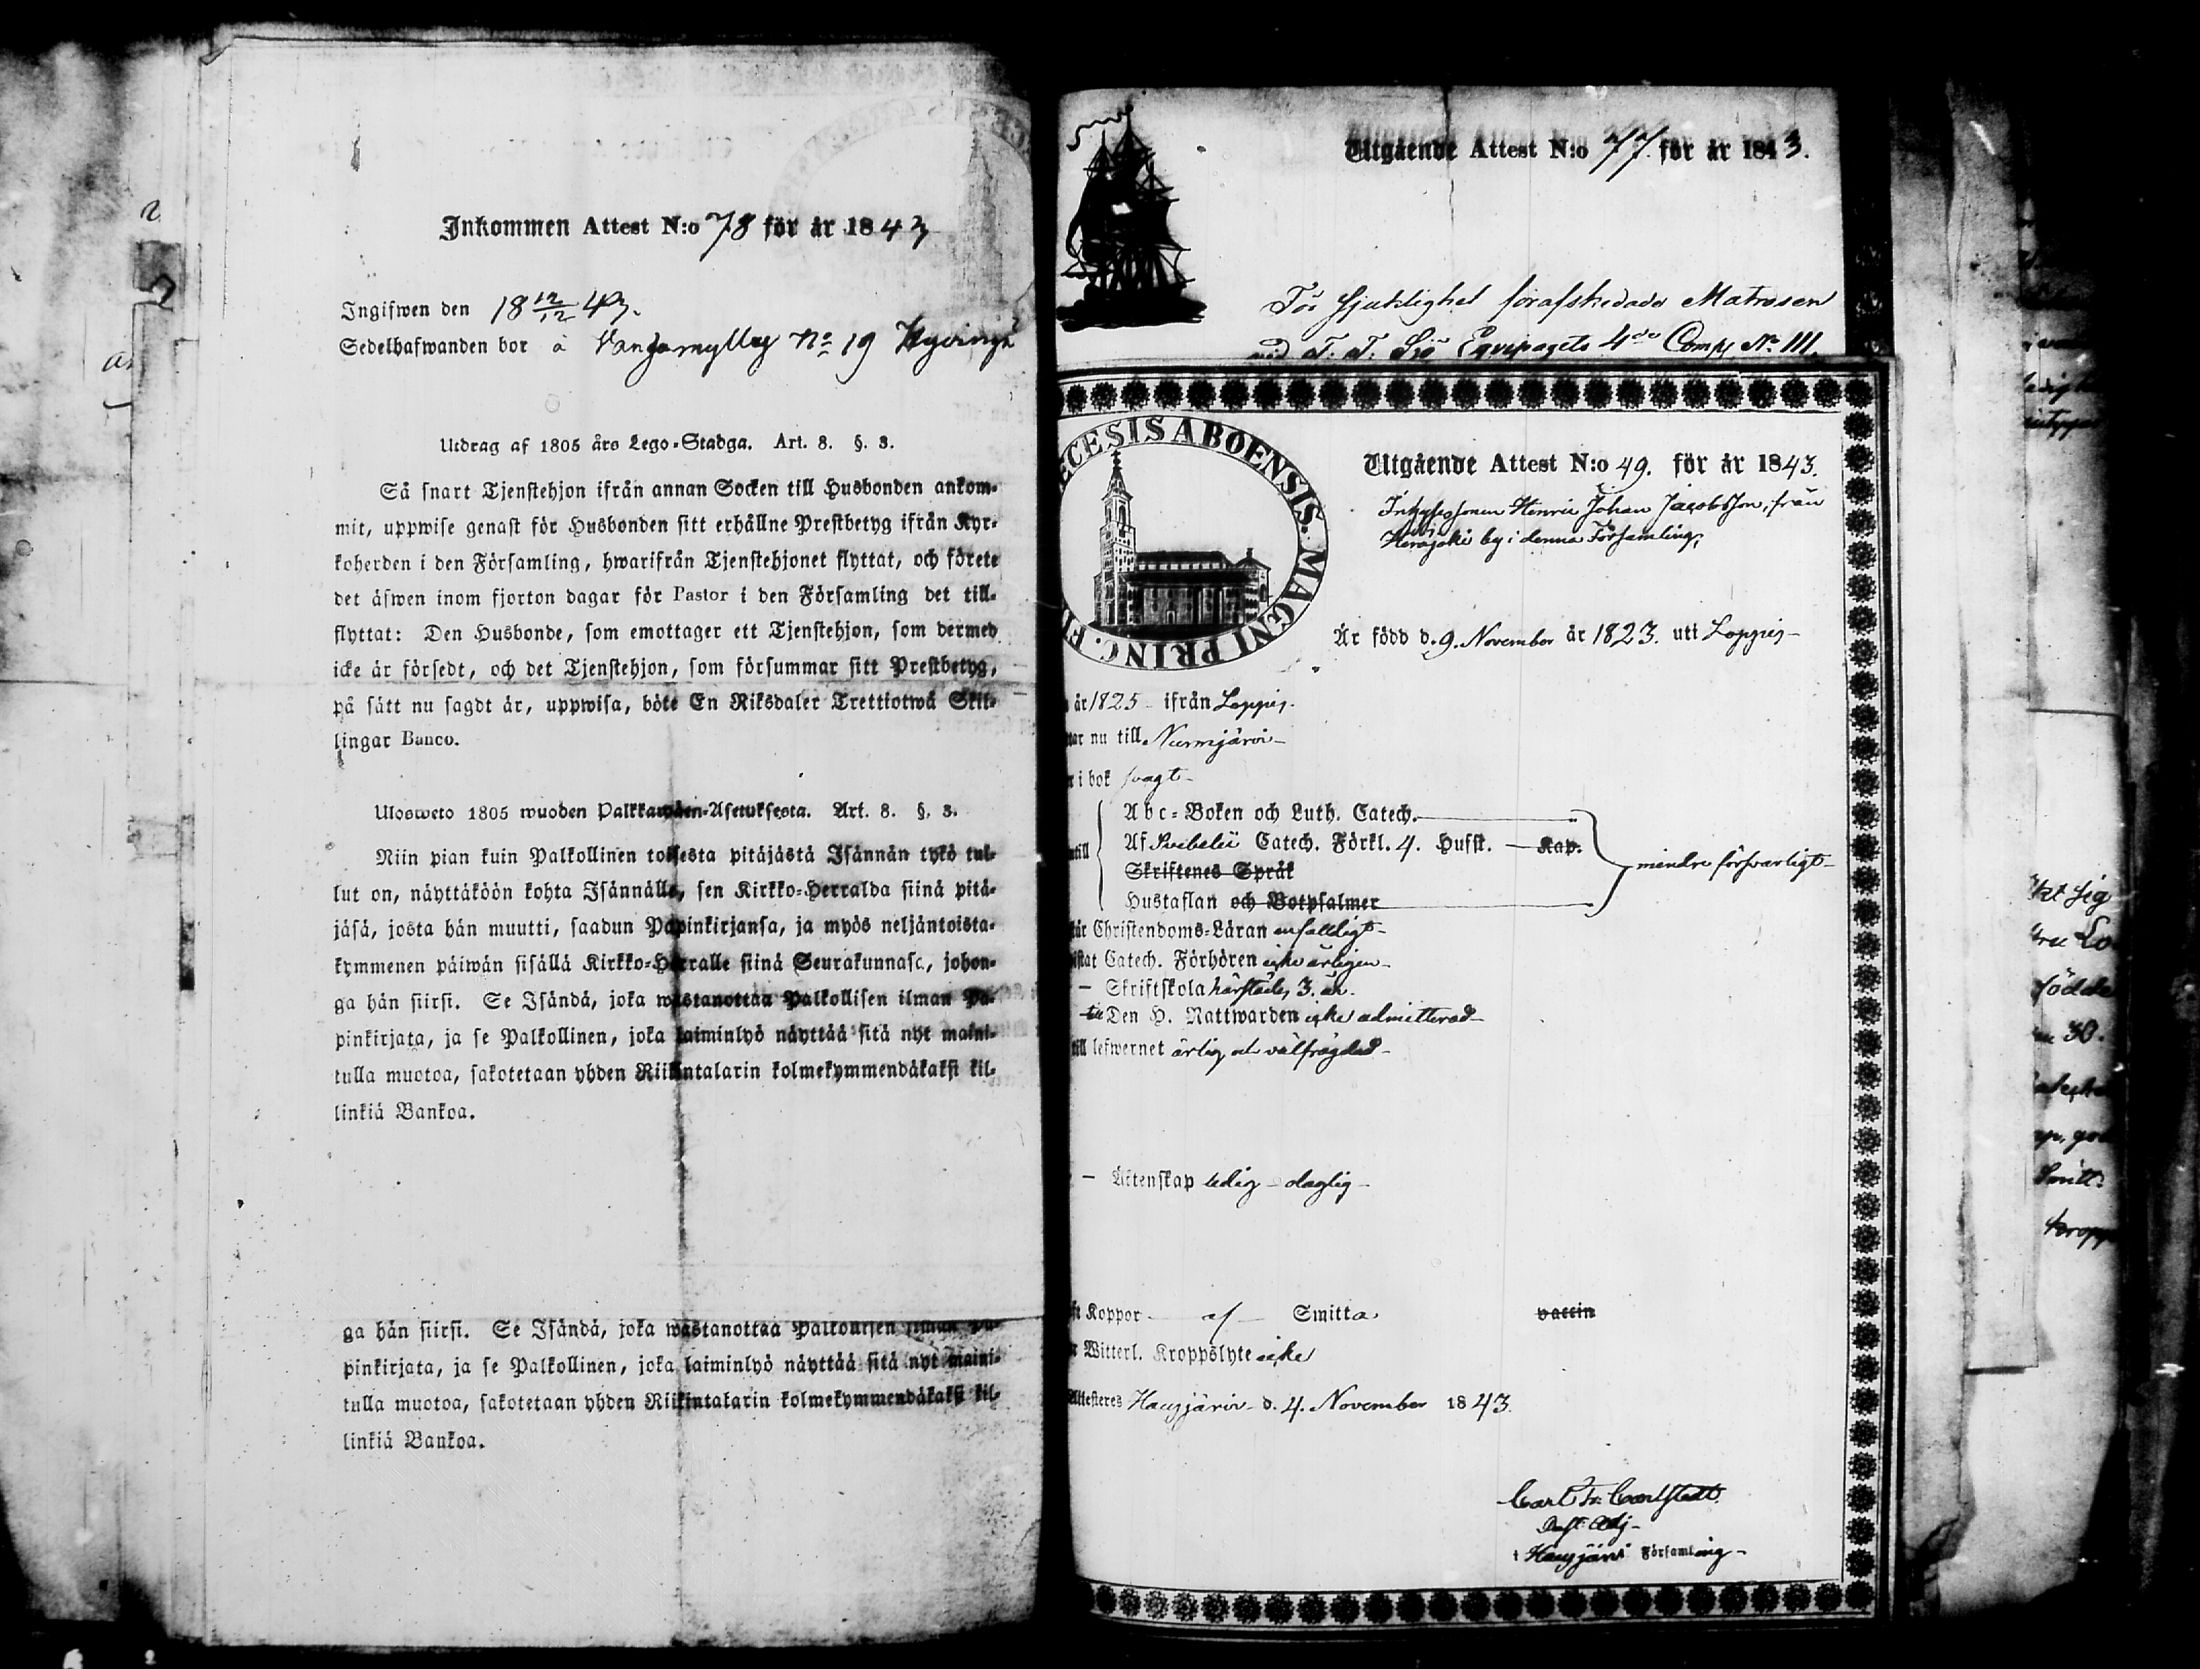 Inkommen Attest N:o 78 för år 1843
Ingifwen den 18 12/12 43.
Sedelhafwanden bor å No 19
Utdrag af 1805 års Lego-Stadga. Art. 8. §. 3.
Så snart Tjenstehjon ifrån annan Socken till Husbonden ankom-
mit, uppwise genast för Husbonden sitt erhållne Prestbetyg ifrån Kyr-
koherden i den Församling, hwarifrån Tjenstehjonet flyttat, och förete
det äfwen inom fjorton dagar för Pastor i den Församling det till-
flyttat: Den Husbonde, som emottager ett Tjenstehjon, som dermed
icke är försedt, och det Tjenstehjon, som försummar sitt Prestbetyg,
på sätt nu sagdt är, uppwisa, böte En Riksdaler Trettiotwå Skil-
lingar Banco.
Ulosweto 1805 wuoden Palkkawäen-Asetuksesta. Art. 8. §. 3.
Niin pian kuin Palkollinen toisesta pitäjästä Isännän tykö tul-
lut on, näyttäköön kohta Isännälle, sen Kirkko-Herralda siinä pitä-
jäsä, josta hän muutti, saadun Papinkirjansa, ja myös neljäntoista-
kymmenen päiwän sisällä Kirkko-Herralle siinä Seurakunnasa, johon-
ga hän siirsi. Se Isändä, joka wastanottaa Palkollisen ilman Pa-
pinkirjata, ja se Palkollinen, joka laiminlyö näyttää sitä nyt maini-
tulla muotoa, sakotetaan yhden Riikintalarin kolmekymmendäkaksi kil-
linkiä Bankoa.
ga hän siirsi. Se Isändä, joka wastanottaa Palkollisen ilman Pa-
pinkirjata, ja se Palkollinen, joka laiminlyö näyttää sitä nyt maini-
tulla muotoa, sakotetaan yhden Riikintalarin kolmekymmendäkaksi kil-
linkiä Bankoa.
Utgående Attest N:o 77. för år 1843.
För sjuklighet förafskedade Matrosen
Sjö Equipagets 4de Comp. No 111.
ECESIS ABOENSIS. MAGNI PRINC. FI
Utgående Attest N:o 49. för år 1843.
Inhysessonen Henric Johan Jacobsson, från
Herajoki by i denna Församling,
Är född d. 9. November år 1823. uti Loppis
år 1825 ifrån Loppis.
nu till Nurmijärvi
i bok svagt
Abc-Boken och Luth. Catech.
Af Svebelii Catech. Förkl. 4. Hufst. Kap.
Skriftenes Språk
Hustaflan och Botpsalmer
mindre försvarligt
Christendoms-Läran enfaldigt
Catech. Förhören icke årligen
Skriftskola härstädes 3. år.
Den H. Nattwarden icke admitterad
till lefwernet ärlig och välfrägdad
Äktenskap ledig
Koppor af Smitta vaccin
Witterl. Kroppslyte icke
Attesteres Hausjärvi d. 4. November 1843.
Carl Fr. Carlstedt
Past. Adj.
i Hausjärvi Församling